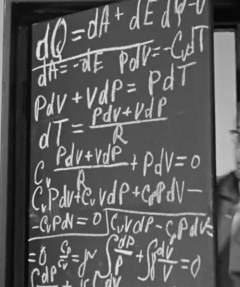 dQ = dA + dE dQ=0
dA = -dE pdV = -CvdT
PdV + VdP = PdT
dT = PdV+VdP / R
Cv PdV+VdP / R + PdV = 0
CvPdV + CvVdP + CpPdV -
- CvPdV = 0 CvVdP - CpPdV=
= 0 Cp/Cv = γ ∫ dP/P + ∫ dV/V = 0